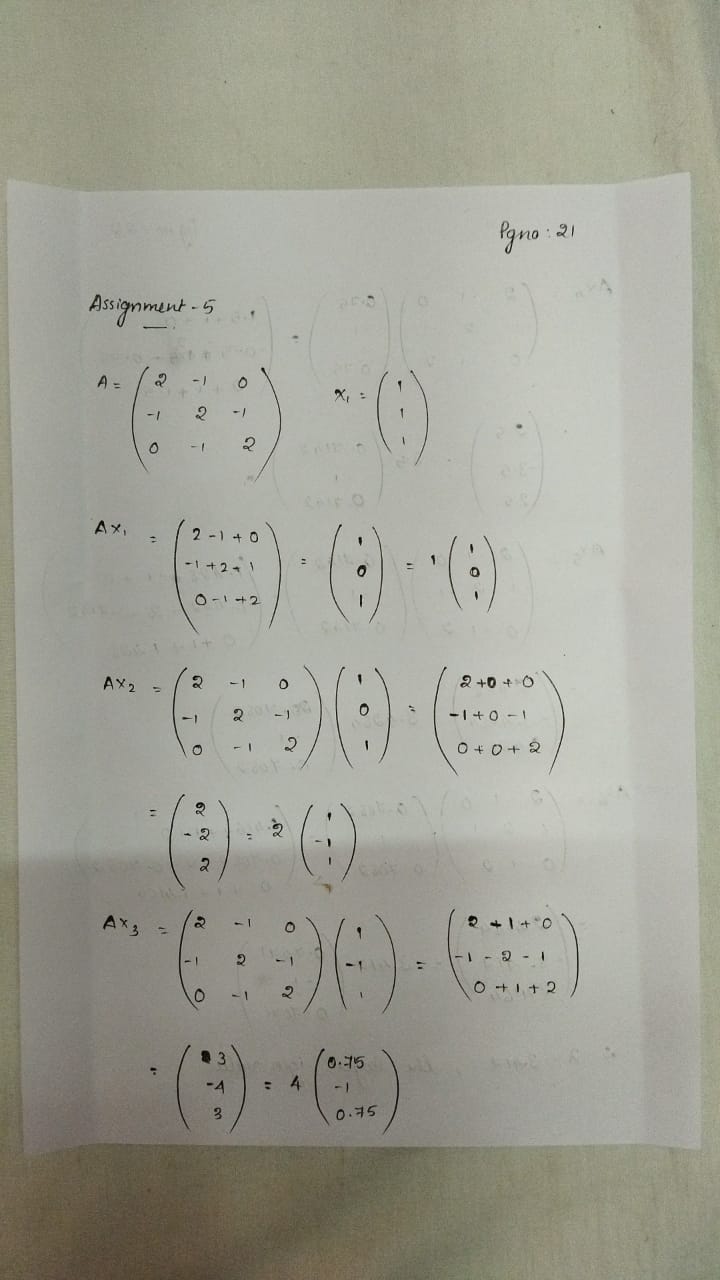 Pgno : 21
Assignment - 5
A = ( 2 -1 0 ; -1 2 -1 ; 0 -1 2 ) x₁ = ( 1 ; 1 ; 1 )
Ax₁ = ( 2 - 1 + 0 ; -1 + 2 - 1 ; 0 - 1 + 2 ) = ( 1 ; 0 ; 1 ) = 1 ( 1 ; 0 ; 1 )
Ax₂ = ( 2 -1 0 ; -1 2 -1 ; 0 -1 2 ) ( 1 ; 0 ; 1 ) = ( 2 + 0 + 0 ; -1 + 0 - 1 ; 0 + 0 + 2 )
= ( 2 ; -2 ; 2 ) = 2 ( 1 ; -1 ; 1 )
Ax₃ = ( 2 -1 0 ; -1 2 -1 ; 0 -1 2 ) ( 1 ; -1 ; 1 ) = ( 2 + 1 + 0 ; -1 - 2 - 1 ; 0 + 1 + 2 )
= ( 3 ; -4 ; 3 ) = 4 ( 0.75 ; -1 ; 0.75 )